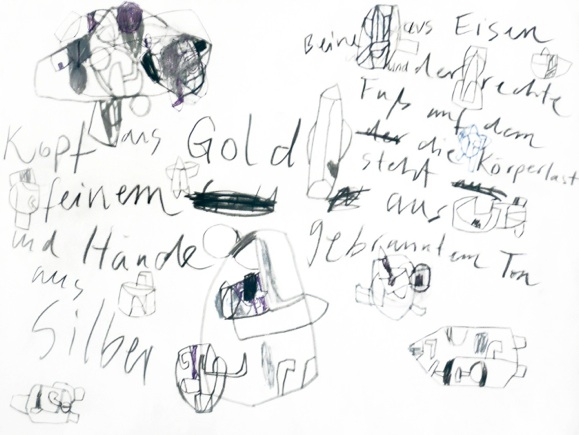 Kopf aus Gold
feinem
und Hände
aus
Silber
Beine aus Eisen
und der rechte
Fuß auf dem
der die Körperlast
steht
aus
gebranntem Ton